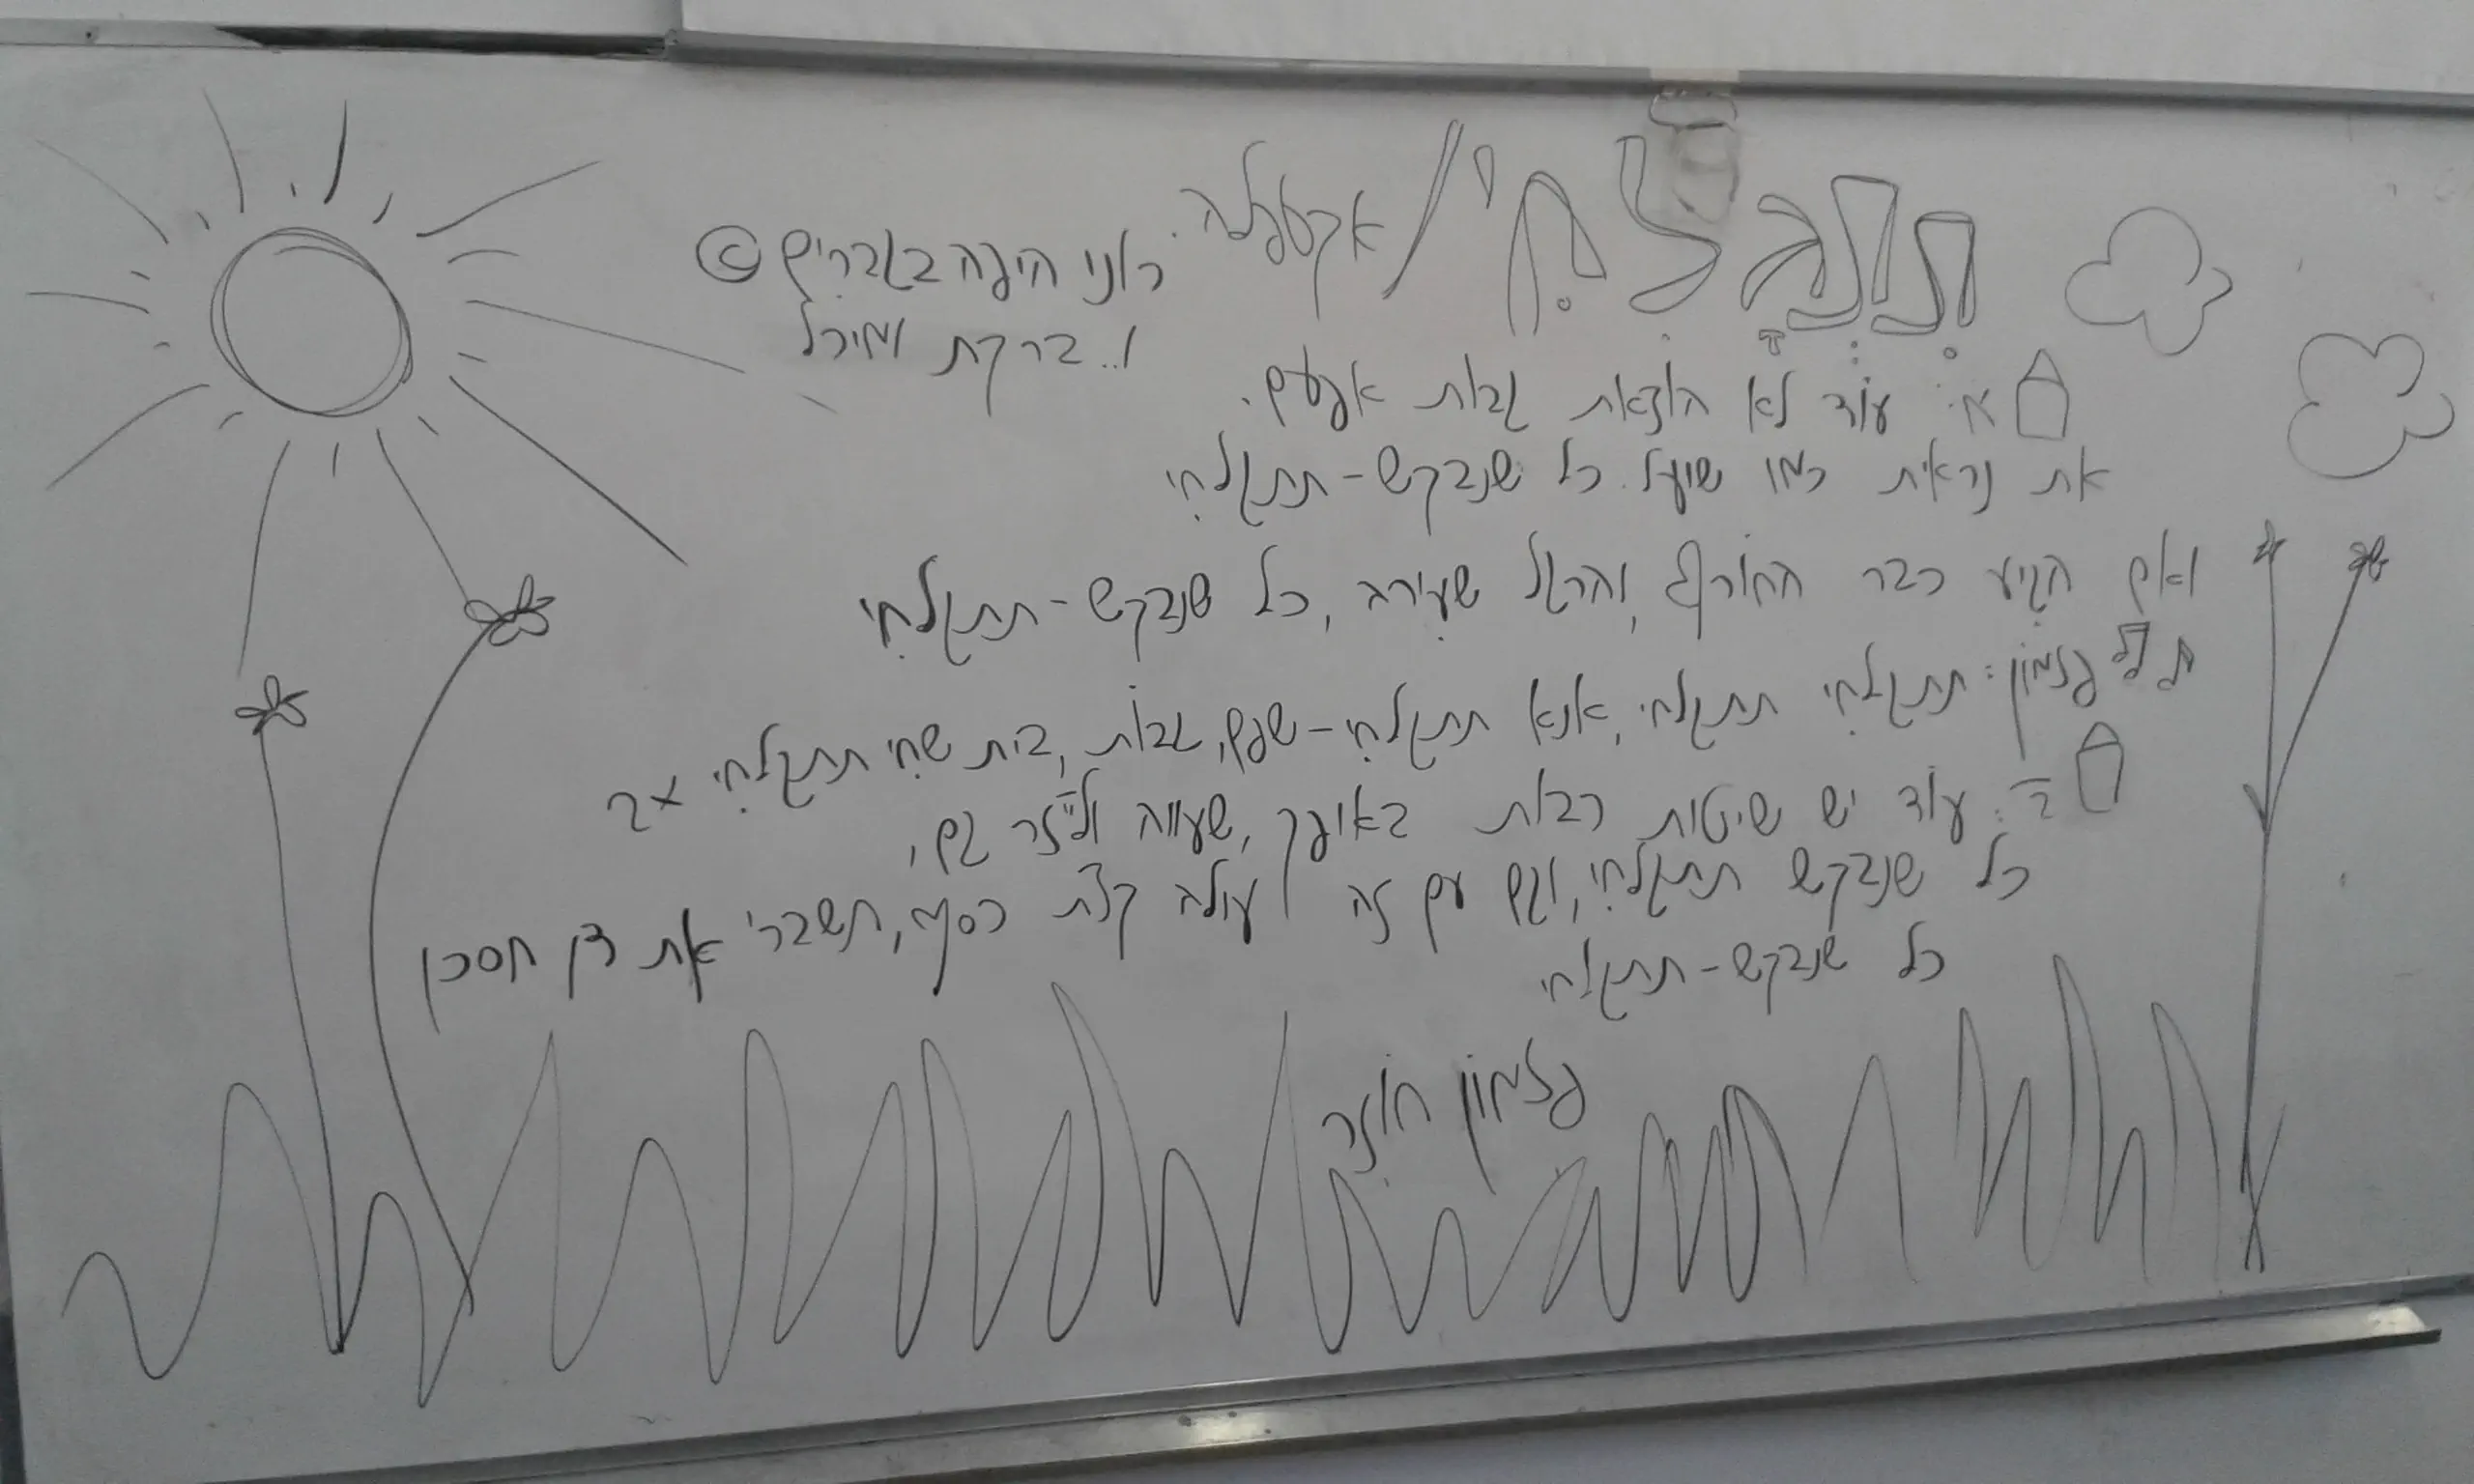 תתגלחי / אקפלה.
רוני היגה בגברים ©
ו.. ברקת ומיכל
א. עוד לא הוצאת גבות אפעם.
את נראית כמו שועל. כל שנבקש - תתגלחי
ואם הגיע כבר החורף, והרגל שעירה, כל שנבקש - תתגלחי
פזמון: תתגלחי תתגלחי, אנא תתגלחי - שפם, גבות, בית שחי תתגלחי כבר
ב. עוד יש שיטות רבות באופק, שעווה ולייזר גם,
כל שנבקש תתגלחי, וגם עם זה עולה קצת כסף, תשברי את דן חסכן
כל שנבקש - תתגלחי
פזמון חוזר